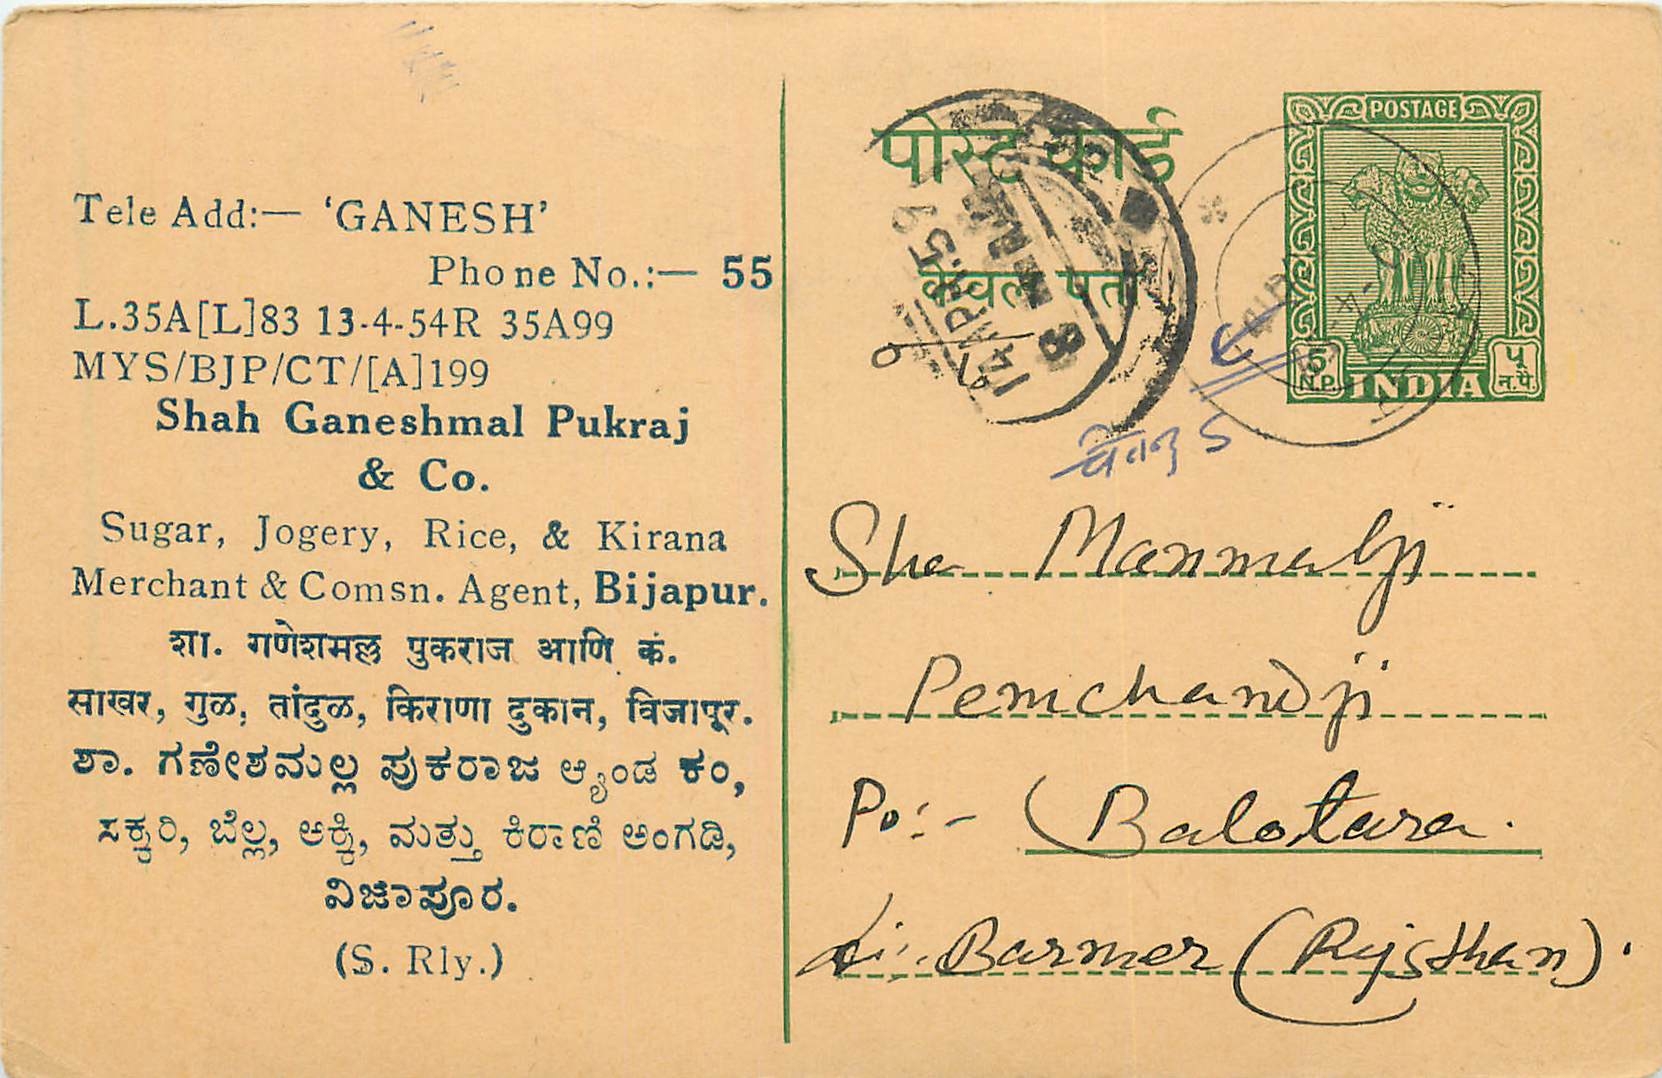 Tele Add:— 'GANESH'
Phone No.:— 55
L.35A[L]83 13-4-54R 35A99
MYS/BJP/CT/[A]199
Shah Ganeshmal Pukraj
& Co.
Sugar, Jogery, Rice, & Kirana
Merchant & Comsn. Agent, Bijapur.
शा. गणेशमल्ल पुकराज आणि कं.
साखर, गुळ, तांदुळ, किराणा दुकान, विजापूर.
ಶಾ. ಗಣೇಶಮಲ್ಲ ಪುಕರಾಜ ಆ್ಯಂಡ ಕಂ,
ಸಕ್ಕರಿ, ಬೆಲ್ಲ, ಅಕ್ಕಿ, ಮತ್ತು ಕಿರಾಣಿ ಅಂಗಡಿ,
ವಿಜಾಪೂರ.
(S. Rly.)
पोस्ट कार्ड
केवल पता
14 APR.59
POSTAGE
5 N.P.
INDIA
५ न.पै.
Sha Manmalji
Pemchandji
Po:- Balotara.
Di:. Barmer (Rajsthan).